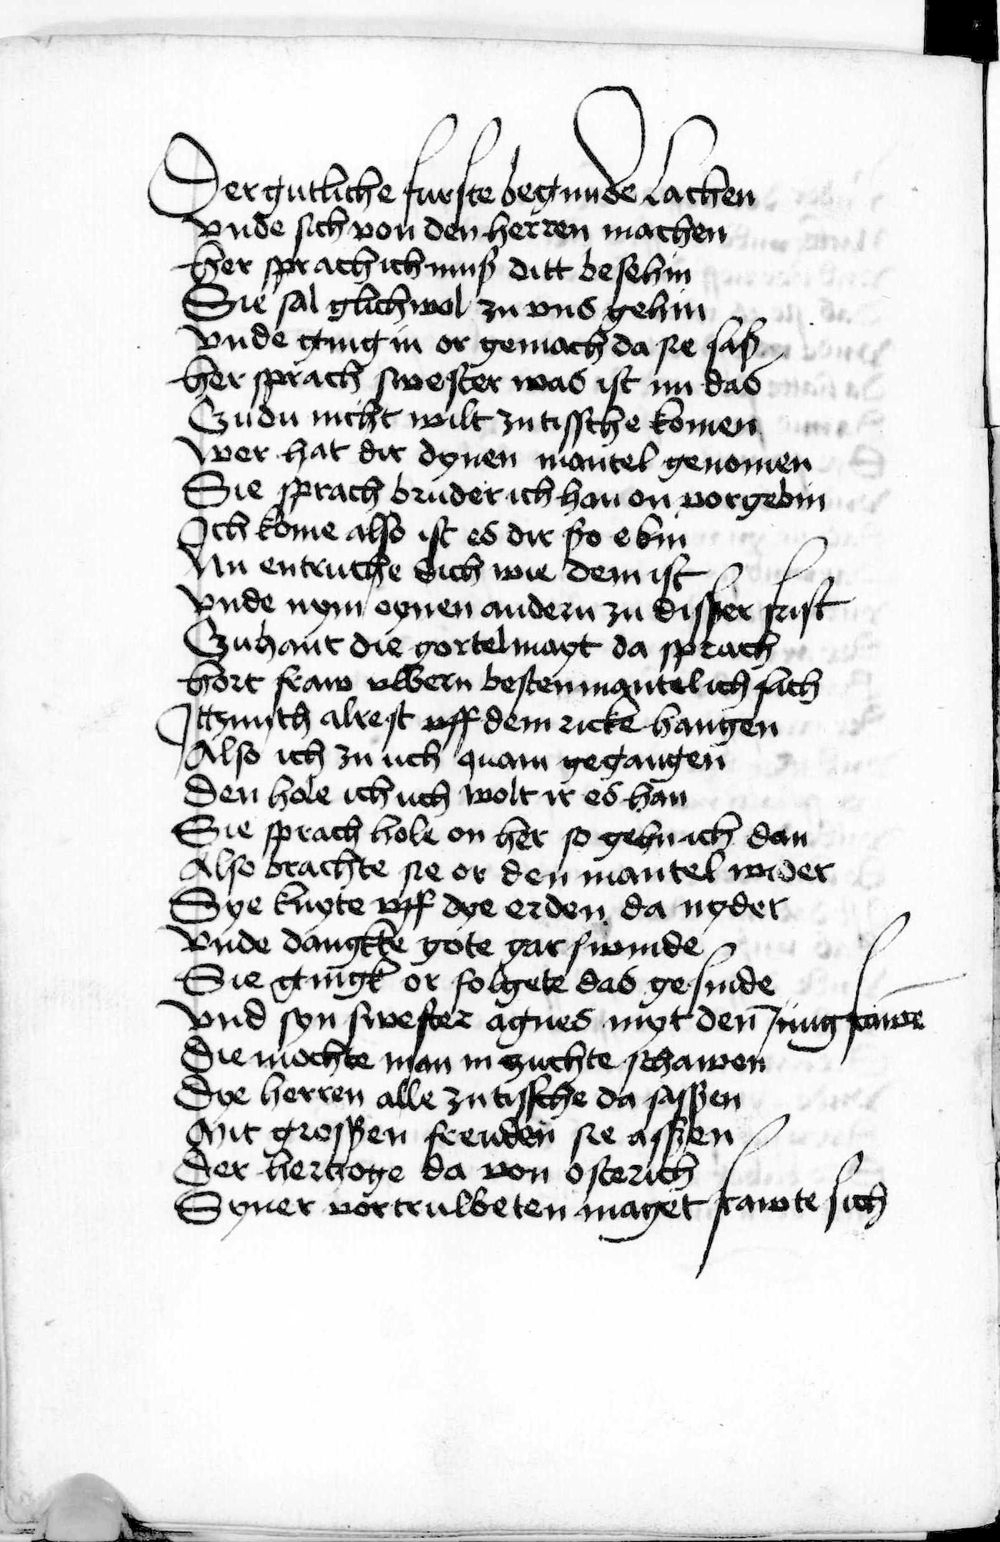 Der gutliche furste begunde lachen
vnde sich von den herren machen
her sprach ich muß ditt besehin
Sie sal glich wol zu vns gehin
vnde ging in or gemach da sie saß
her sprach swester was ist nu das
Zu du nicht wilt zu tissche komen
wer hat dir dynen mantel genomen
Sie sprach bruder ich han on vorgebin
Ich kome also ist es dir ßo ebin
Nu entruche dich wie dem ist
vnde nym eynen andern zu disßer frist
Zuhant die gortelmayt da sprach
hort fraw uwern besten mantel ich sach
Ittzunth alrest vff dem ricke hangen
Also ich zu uch quam gegangen
Den hole ich uch wolt ir es han
Sie sprach hole on her so gehn ich dan
Also brachte sie or den mantel weder
Sye knyte vff dye erden da nyder
vnde dangkte gote gar swinde
Sie gingk or folgete das gesinde
vnd syn swester agnes myt den jungfrawen
Die mochte man in zuchte schawen
Dye herren alle zu tissche da saßen
Mit groszen freuden sie aszen
Der hertzoge da von osterich
Syner vortruweten maget frawte sich